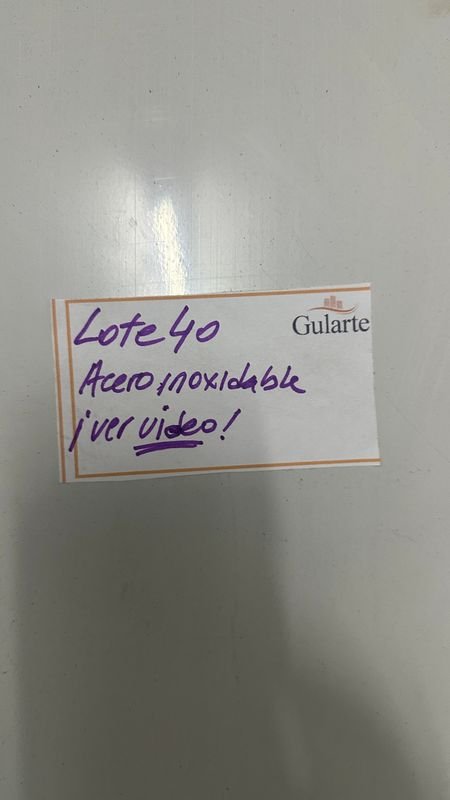 Lote 40
Gularte
Acero inoxidable
¡ver video!